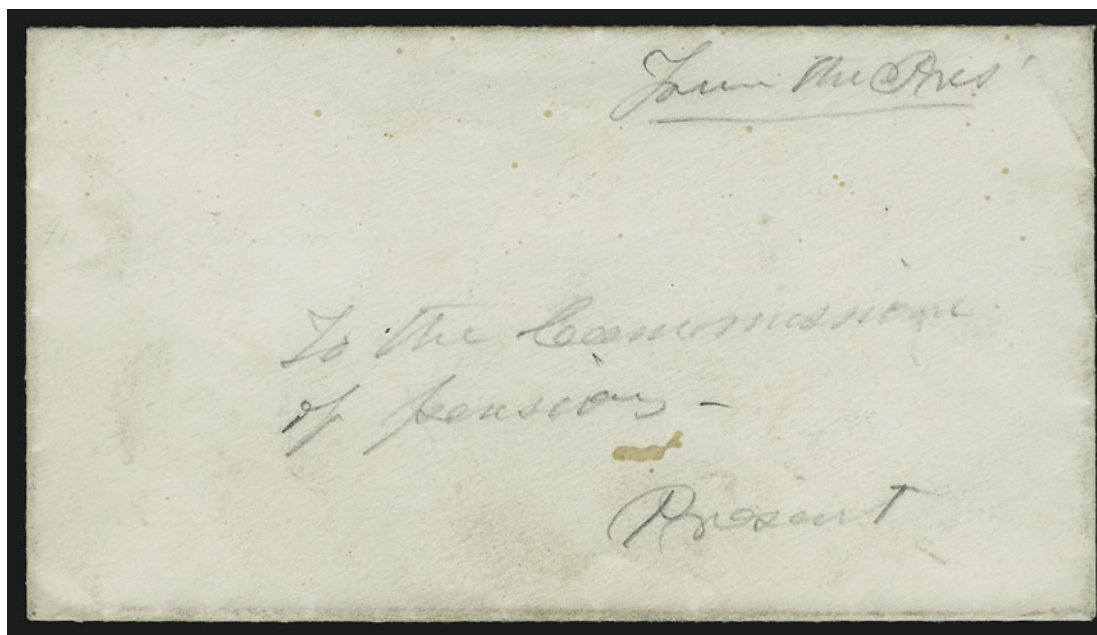 From the Pres'
To the Commissioner
of pensions -
Present